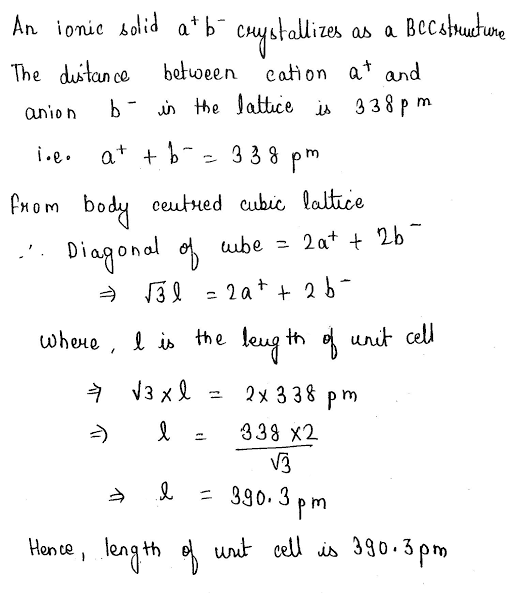 An ionic solid a⁺b⁻ crystallizes as a BCC structure
The distance between cation a⁺ and
anion b⁻ in the lattice is 338 pm
i.e. a⁺ + b⁻ = 338 pm
from body centred cubic lattice
∴ Diagonal of cube = 2a⁺ + 2b⁻
⇒ √3 l = 2a⁺ + 2b⁻
where, l is the length of unit cell
⇒ √3 x l = 2 x 338 pm
⇒ l = 338 x2
√3
⇒ l = 390.3 pm
Hence, length of unit cell is 390.3 pm